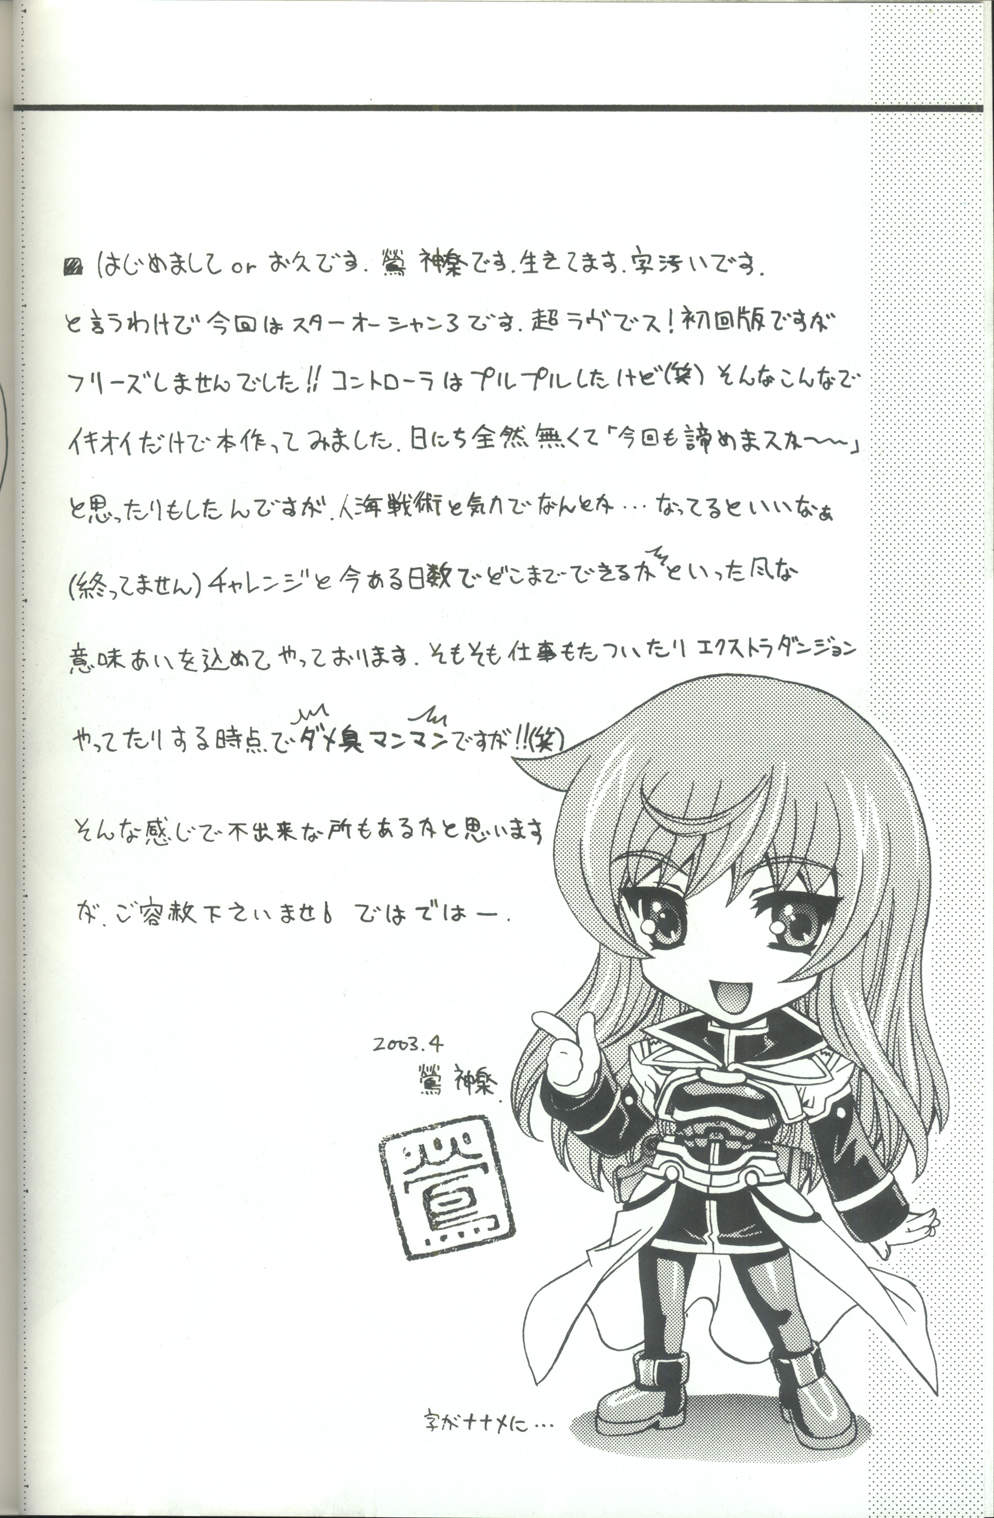 はじめまして or お久です. 鶯 神楽です. 生きてます. 字汚いです.
と言うわけで今回はスターオーシャン3です. 超ラヴでス！初回版ですが
フリーズしませんでした!! コントローラはプルプルしたけど(笑) そんなこんなで
イキオイだけで本作ってみました. 日にち全然無くて「今回も諦めまスカ〜〜」
と思ったりもしたんですが. 人海戦術と気力でなんとか… なってるといいなぁ
(終ってません) チャレンジと今ある日数でどこまでできるかといった風な
意味あいを込めてやっております. そもそも仕事もたついたりエクストラダンジョン
やってたりする時点でダメ臭マンマンですが!!(笑)
そんな感じで不出来な所もあるかと思います
が、ご容赦下さいませ。ではではー.
2003.4
鶯 神楽.
鶯
字がナナメに…